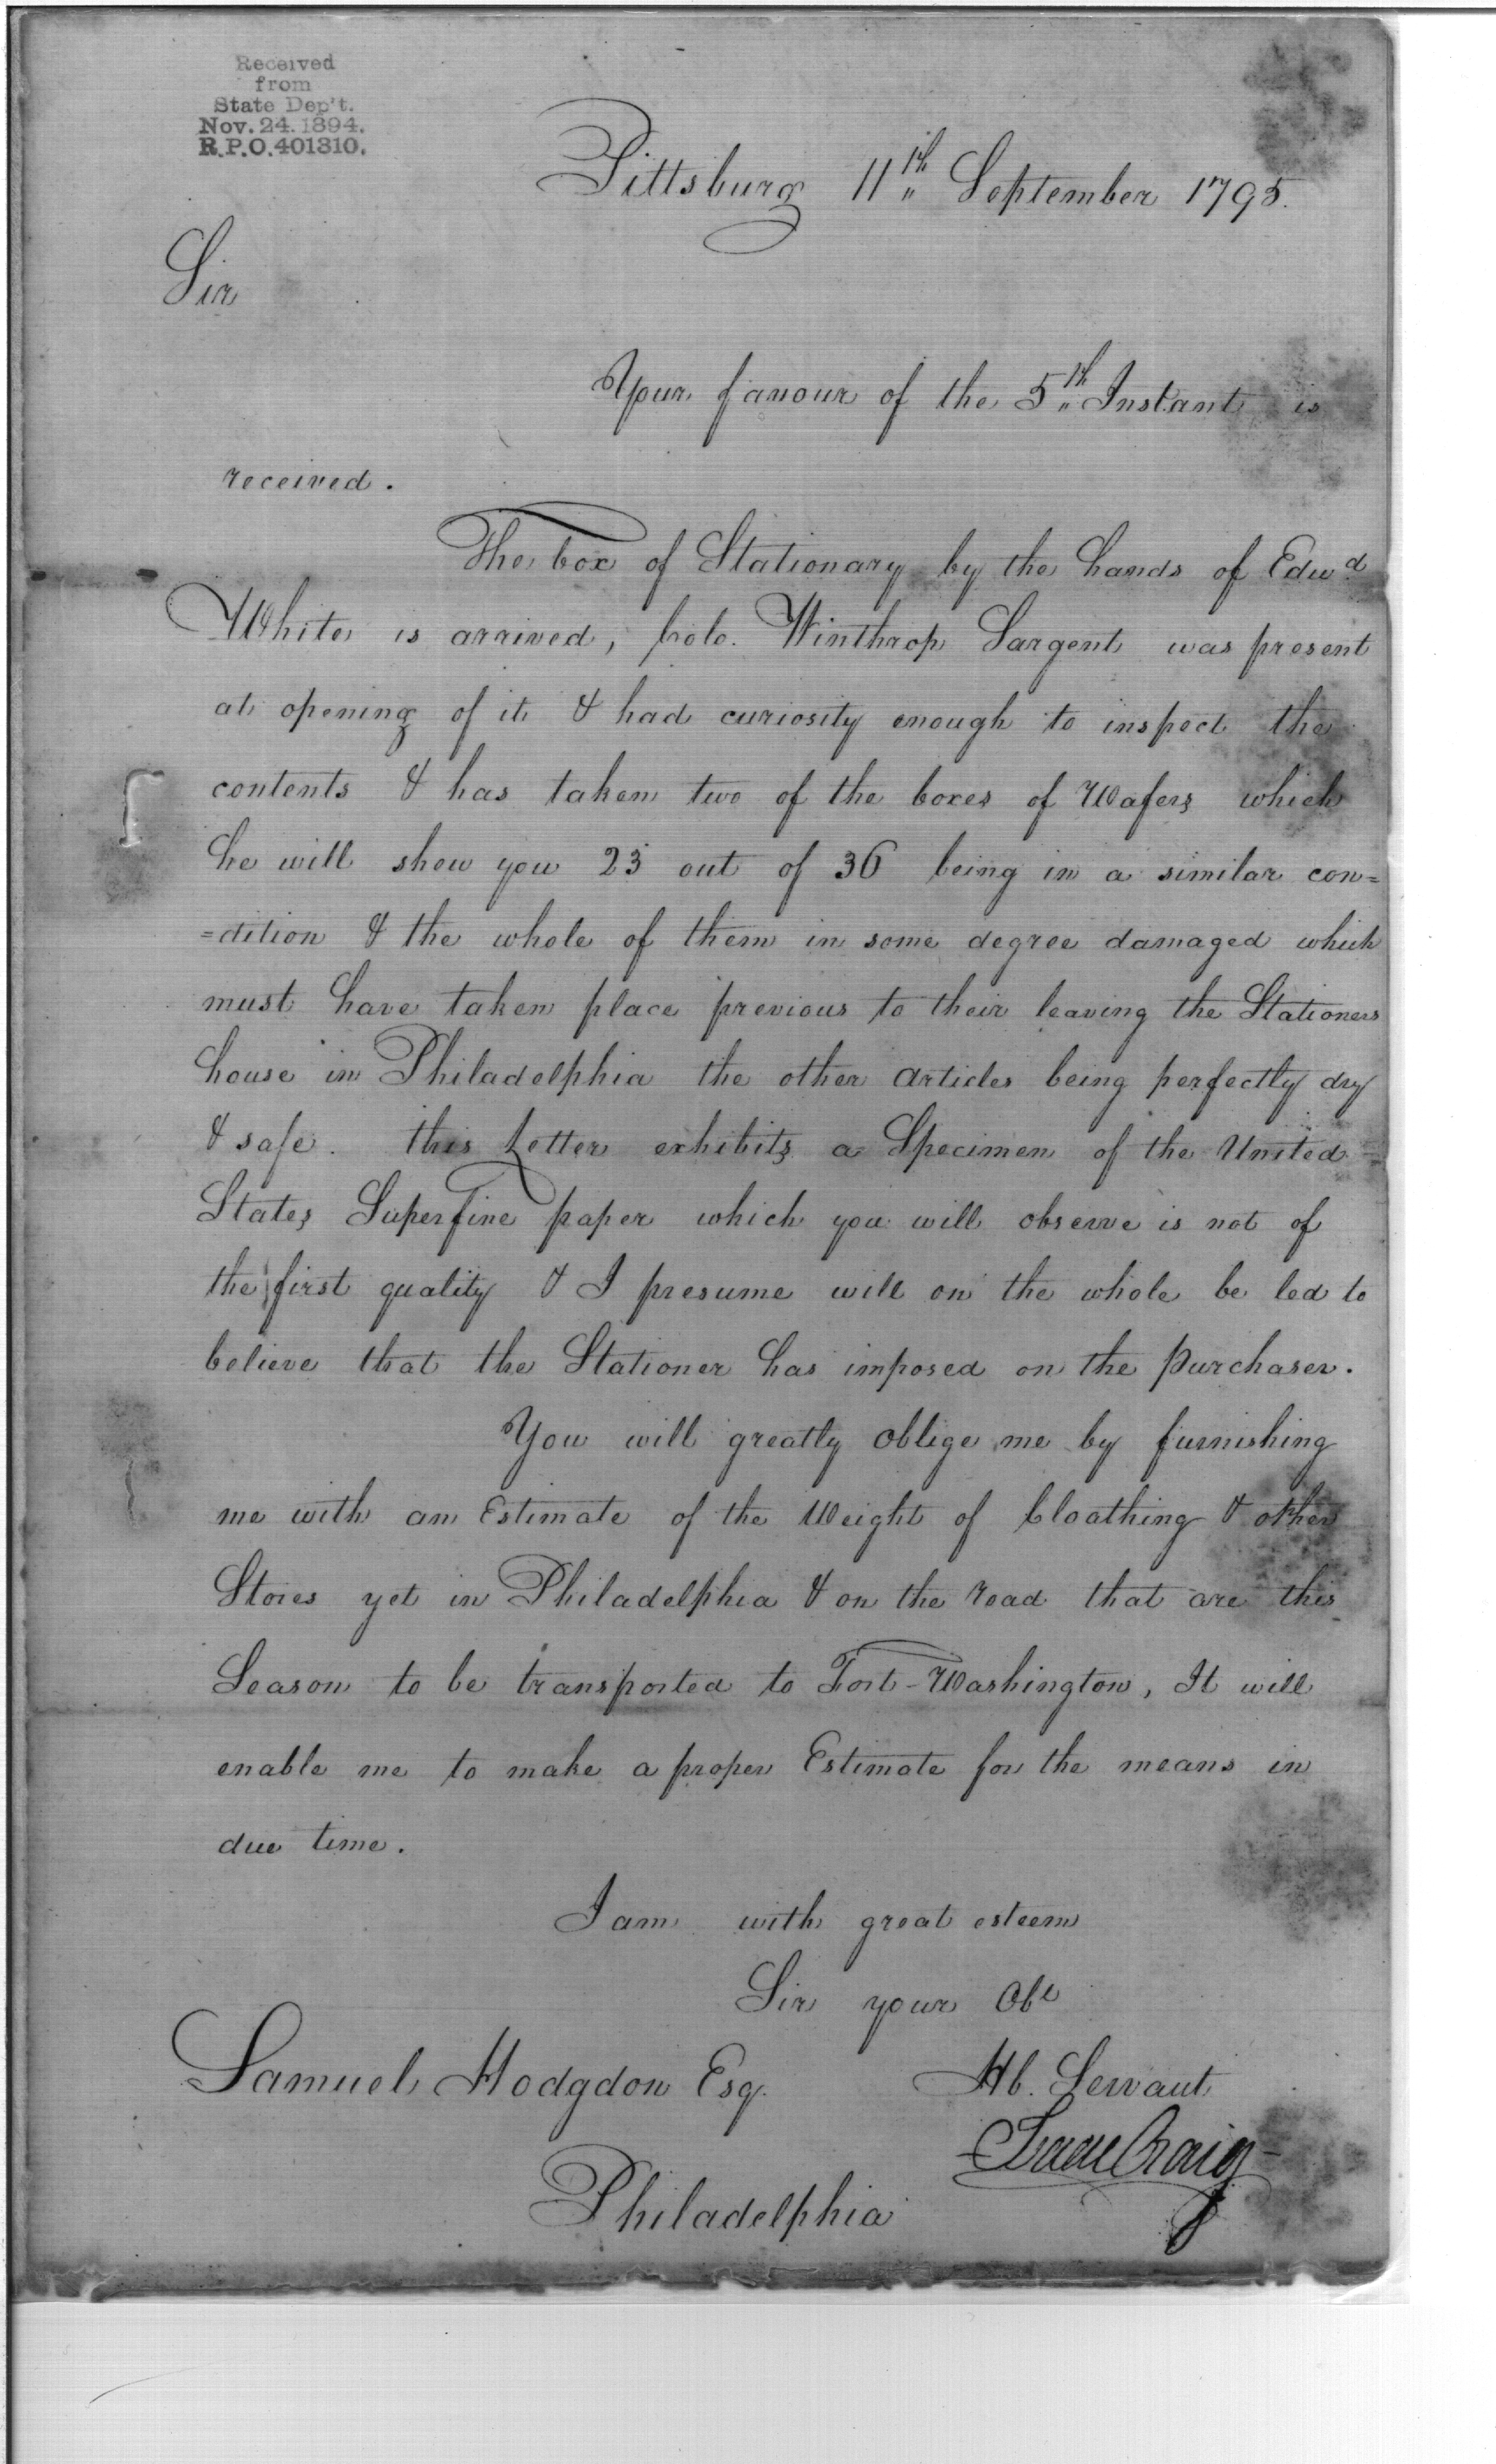 Received
from
State Dep't.
Nov. 24. 1894.
R.P.O. 401310.
Pittsburg 11th September 1795.
Sir
Your favour of the 5th Instant is
received.
The box of Stationary by the hands of Edwd
White is arrived, Colo. Winthrop Sargent was present
at opening of it & had curiosity enough to inspect the
contents & has taken two of the boxes of Wafers which
he will shew you 23 out of 36 being in a similar con=
=dition & the whole of them in some degree damaged which
must have taken place previous to their leaving the Stationers
house in Philadelphia the other articles being perfectly dry
& safe. this Letter exhibits a Specimen of the United
States Superfine paper which you will observe is not of
the first quality & I presume will on the whole be led to
believe that the Stationer has imposed on the purchaser.
You will greatly oblige me by furnishing
me with an Estimate of the Weight of Cloathing & other
Stores yet in Philadelphia & on the road that are this
Season to be transported to Fort-Washington, It will
enable me to make a proper Estimate for the means in
due time.
I am with great esteem
Sir your Obt
Samuel Hodgdon Esq. Hb. Servant
Isaac Craig
Philadelphia